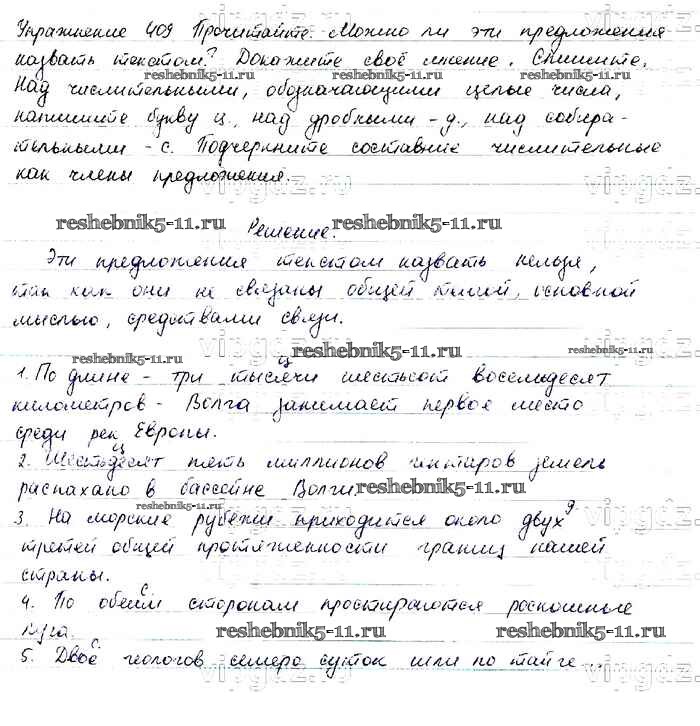 Упражнение 409 Прочитайте. Можно ли эти предложения
назвать текстом? Докажите своё мнение. Спишите.
reshebnik5-11.ru reshebnik5-11.ru
Над числительными, обозначающими целые числа,
напишите букву ц., над дробными - д., над собира-
тельными - с. Подчеркните составные числительные
как члены предложения.
vipgdz.ru
reshebnik5-11.ru Решение. reshebnik5-11.ru
Эти предложения текстом назвать нельзя,
так как они не связаны общей темой, основной
мыслью, средствами связи.
reshebnik5-11.ru reshebnik5-11.ru reshebnik5-11.ru
ц
1. По длине - три тысячи шестьсот восемьдесят
километров - Волга занимает первое место
среди рек Европы.
ц
2. Шестьдесят пять миллионов гектаров земель
распахано в бассейне Волги reshebnik5-11.ru
reshebnik5-11.ru
д
3. На морские рубежи приходится около двух
третей общей протяженности границ нашей
страны.
с
4. По обеим сторонам простираются роскошные
луга. reshebnik5-11.ru reshebnik5-11.ru
с
5. Двое геологов семеро суток шли по тайге...
vipgdz.ru